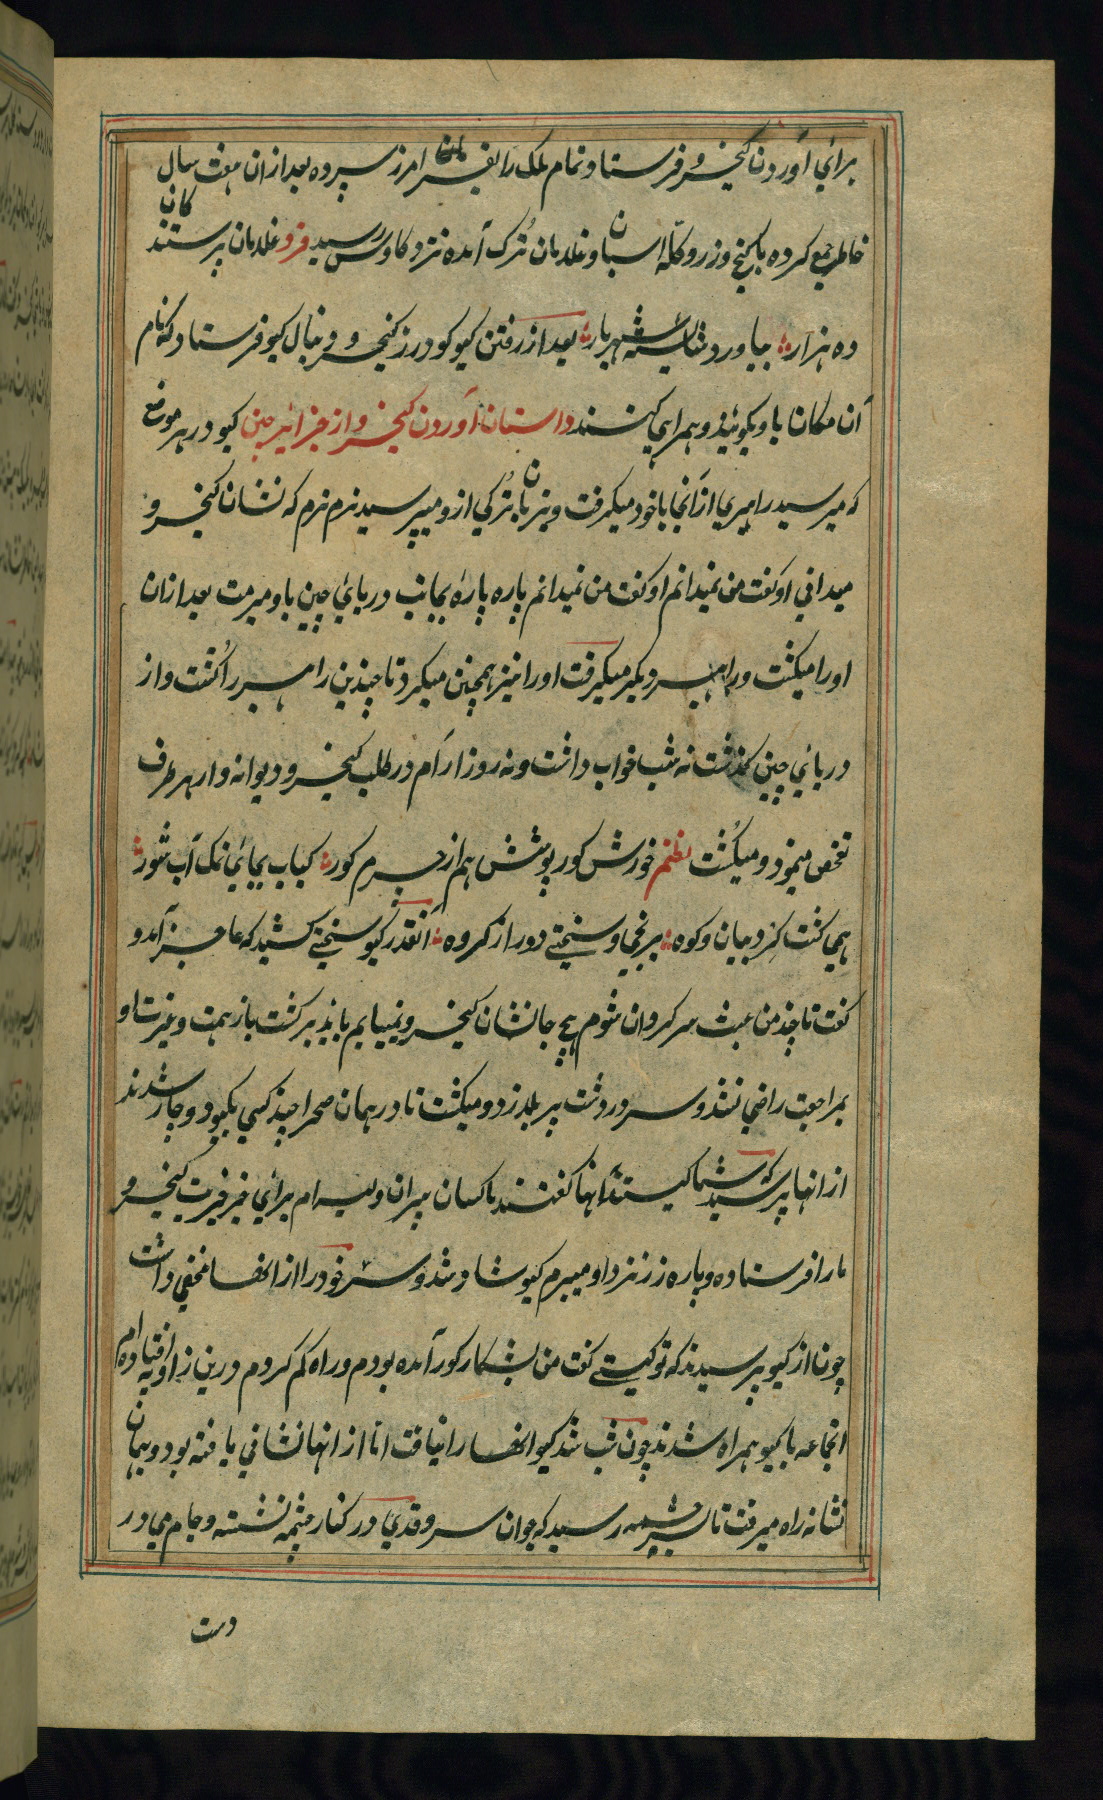 برائی آوردن کیخسرو فرستاد و تمام ملک را بفرامرز سپرده بعد ازان هفت سال
خاطر جمع کرده با گنج و زر و گلّه اسپان و غلامان تُرک آمده نزد کاوس رسید فرد غلامان پرستندکان
ده هزار بیاورد شایسته شهریار بعد از رفتن کیو کودرز کیخسرو دنبال کیو فرستاد که نام
آن مکان با و بکویند و همراهی کنند داستان آوردن کیخسرو از جزائر چین کیو در هر موضع
که میرسید راهبری از آنجا با خود میکرفت و بزبان تُرکی ازو میپرسید نرم نرم که نشان کیخسرو
میدانی او کفت من نمیدانم او کفت من نمیدانم پاره پاره بجانب دریائی چین با و میرفت بعد ازان
اورا میکشت و راهبر دیکر میکرفت اورا نیز همچنین میکرد تا چندین راهبر را کُشت و از
دریائی چین کذشت نه شب خواب داشت و نه روز آرام در طلب کیخسرو دیوانه وار هر طرف
تفحص مینمود و میکشت نظم خورش کور پوشش هم از چرم کور کباب بجائی نمک آب شور
همی کشت کرد بیابان و کوه برنجی و سختی دور از کروه آنقدر کیو سختی کشید که عاجز آمد و
کفت تا چند من عبث سرکردان شوم هیچ جا نشان کیخسرو نمییابم باید برکشت باز همت و غیرت او
بمراجعت راضی نشد و سر در دشت پر بلا زد و میکشت تا در همان صحرا چند کسی بکیو دوچار شدند
از انها پرسید که شما کیستند انها کفتند ما کسان پیران ویسه ام برائی خبر خیریت کیخسرو
مارا فرستاده و پاره زر نزد او میبرم کیو شاد شد و سر خود را از انها مخفی داشت
چون از کیو پرسیدند که تو کیستی کفت من بشکار کور آمده بودم و راه کم کردم درین زاویه افتاده ام
انجماعه با کیو همراه شدند چون شب شد کیو انها را نیافت اما از انها نشانی یافته بود و بهمان
نشانه راه میرفت تا بسر چشمه رسید که جوان سرو قدی در کنار چشمه نشسته و جام می در
دست